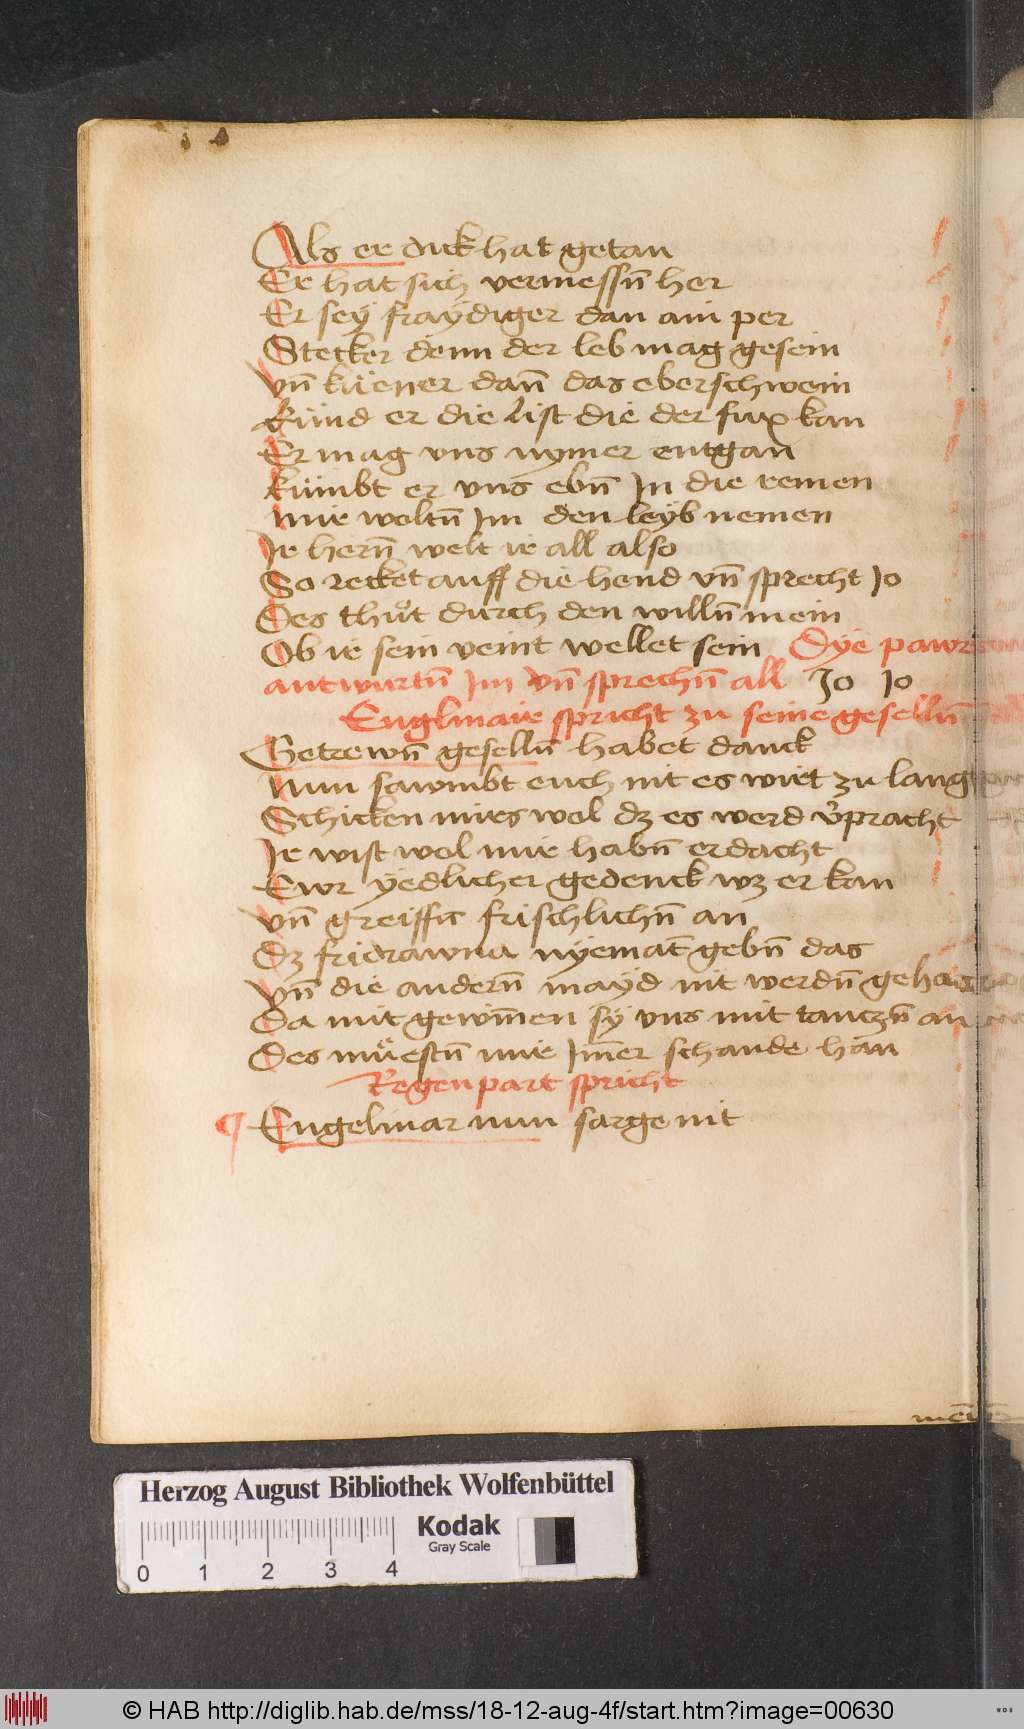 Als er dick hat getan
Er hat sich vermessn̄ her
Er sey fraydiger dan ain per
Stercker denn der leb mag gesein
vn̄ küener dan̄ das eberschwein
Künd er die list die der fux kan
Er mag vns nymer entgan
kümbt er vns ebn̄ In die remen
mir woltn̄ Im den leyb nemen
Ir hern̄ welt ir all also
So recket auff die hend vn̄ sprecht Jo
Des thůt durch den willn̄ mein
Ob ir sein veint wellet sein Dye pawrn
antwurtn̄ Im vn̄ sprechn̄ all Jo Jo
Englmair spricht zu seine geselln̄
Getrewn̄ geselln̄ habet danck
Nun sawmbt euch nit es wirt zu lang
Schicken mirs wol dz es werd v̉pracht
Ir wist wol mir habn̄ erdacht
Ewr yedlicher gedenck wz er kan
vn̄ greiffn̄ frischlichn̄ an
Dz fridrawna nyemat̄ gebn̄ das
vn̄ die andern̄ mayd nit werdn̄
Da mit gewin̄en sy vns mit tanczn̄ an
Des müestn̄ mir Im̄er schande han
Regenpart spricht
¶ Engelmar nun sarge nit
Herzog August Bibliothek Wolfenbüttel
Kodak
Gray Scale
0 1 2 3 4
© HAB http://diglib.hab.de/mss/18-12-aug-4f/start.htm?image=00630